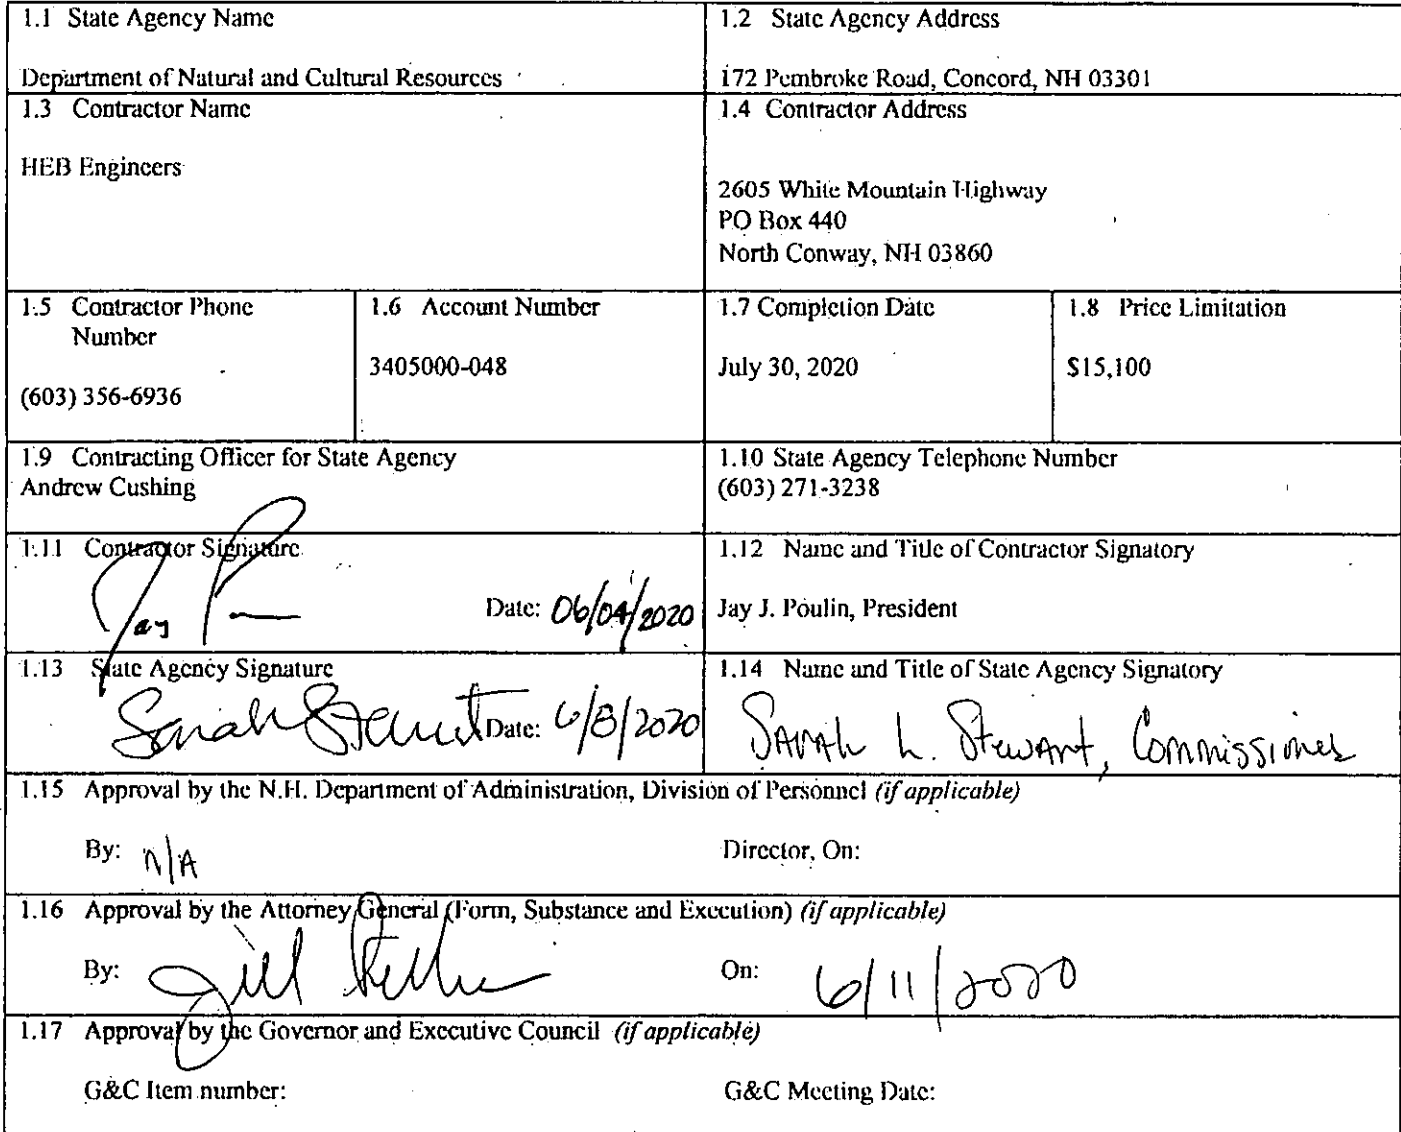 1.1 State Agency Name
Department of Natural and Cultural Resources
1.2 State Agency Address
172 Pembroke Road, Concord, NH 03301
1.3 Contractor Name
HEB Engineers
1.4 Contractor Address
2605 White Mountain Highway
PO Box 440
North Conway, NH 03860
1.5 Contractor Phone
Number
(603) 356-6936
1.6 Account Number
3405000-048
1.7 Completion Date
July 30, 2020
1.8 Price Limitation
$15,100
1.9 Contracting Officer for State Agency
Andrew Cushing
1.10 State Agency Telephone Number
(603) 271-3238
1.11 Contractor Signature
Jay
Date: 06/04/2020
1.12 Name and Title of Contractor Signatory
Jay J. Poulin, President
1.13 State Agency Signature
Sarah Stewart Date: 6/8/2020
1.14 Name and Title of State Agency Signatory
Sarah L. Stewart, Commissioner
1.15 Approval by the N.H. Department of Administration, Division of Personnel (if applicable)
By: N/A
Director, On:
1.16 Approval by the Attorney General (Form, Substance and Execution) (if applicable)
By: Jill
On: 6/11/2020
1.17 Approval by the Governor and Executive Council (if applicable)
G&C Item number:
G&C Meeting Date: